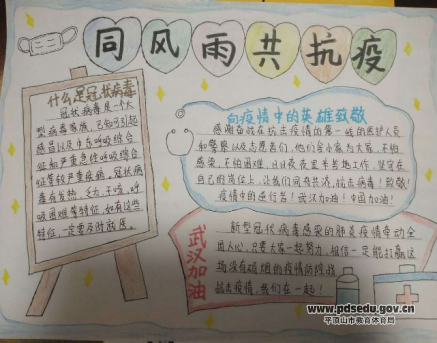 同风雨共抗疫
什么是冠状病毒
冠状病毒是一个大
型病毒家族，已知可引起
感冒以及中东呼吸综合
征和严重急性呼吸综合
征等较严重疾病，冠状病
毒有发热，乏力，干咳，呼
吸困难等特征，如有这些
特征，一定要及时就医。
向疫情中的英雄致敬
感谢奋战在抗击疫情的第一线的医护人员
和警察以及志愿者们，他们舍小家为大家，不怕
感染，不怕困难，日日夜夜坚守在
自己的岗位上，让我们同舟共济，抗击病毒！致敬！
疫情中的逆行者！武汉加油！中国加油！
武汉加油
新型冠状病毒感染的肺炎疫情牵动全
国人心，只要大家一起努力，相信一定能打赢这
场没有硝烟的疫情防御战
抗击疫情，我们在一起！
www.pdsedu.gov.cn
平顶山市教育体育局